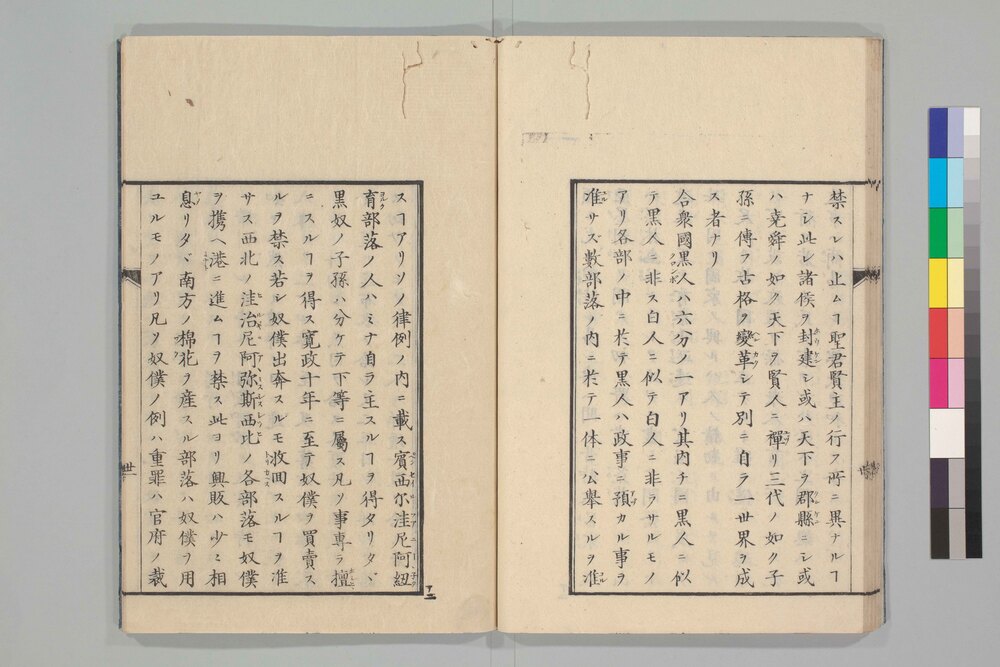 禁スレハ止ムヿ聖君賢主ノ行フ所ニ異ナルヿ
ナシ此レ諸侯ヲ封建シ或ハ天下ヲ郡縣ニシ或
ハ堯舜ノ如ク天下ヲ賢人ニ禪リ三代ノ如ク子
孫ニ傳フ古格ヲ變革シテ別ニ自ラ一世界ヲ成
ス者ナリ
合衆國黒人ハ六分ノ一アリ其内チニ黒人ニ似
テ黒人ニ非ス白人ニ似テ白人ニ非ラサルモノ
アリ各部ノ中ニ於テ黒人ハ政事ニ預カル事ヲ
准サズ數部落ノ内ニ於テ一体ニ公舉スルヲ准
スヿアリソノ律例ノ内ニ載ス賓西尓洼尼阿紐
育部落ノ人ハミナ自ラ主スルヿヲ得タリタヾ
黒奴ノ子孫ハ分ケテ下等ニ屬ス凡ソ事専ラ擅
ニスルヿヲ得ス寛政十年ニ至テ奴僕ヲ買賣ス
ルヲ禁ス若シ奴僕出奔スルモ收回スルヿヲ准
サス西北ノ洼治尼阿弥斯西比ノ各部落モ奴僕
ヲ携ヘ港ニ進ムヿヲ禁ス此ヨリ興販ハ少ミ相
息リタヾ南方ノ棉花ヲ産スル部落ハ奴僕ヲ用
ユルモノアリ凡ソ奴僕ノ例ハ重罪ハ官府ノ裁